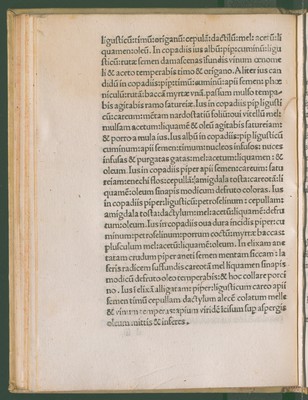 ligusticũ: timũ: origanũ: cepulã: dactilũ: mel: acetũ: li
quamen: oleũ. In copadiis ius albũ: pip: cuminũ: ligu
sticũ: rutæ semen damascenas ifundis uinum œnome
li & aceto temperabis timo & origano. Aliter ius can
didũ in copadiis: pip: timũ: cuminũ: apii semen: phœ
niculũ: rutã: baccã myrtæ uuã. passum mulso tempa
bis agitabis ramo satureiæ. Ius in copadiis pip ligusti
cũ: careum: mẽtam nardostatiũ foliũ: oui vitellũ mel:
mulsam acetum: liquamẽ & oleũ agitabis satureiam:
& porro amula ius. Ius albũ in copadiis: pip ligusticũ
cuminum: apii semen: timum: nucleos infusos: nuces
infusas & purgatas gatas: mel: acetum: liquamen: &
oleum. Ius in copadiis piper apii semen: careum: satu
reiam: enechi flos: cepullã: amigdala tosta: careotã: li
quamẽ: oleum sinapis modicum defruto coloras. Ius
in copadiis piper: ligusticũ: petroselinum: cepullam:
amigdala tosta: dactylum: mel: acetũ: liquamẽ: defru
tum: oleum. Ius in copadiis oua dura incidis piper: cu
minum: petroselinum: porrum coctũ: myrtæ baccas:
plusculum mel: acetũ: liquamẽ: oleum. In elixam ane
tatam crudum piper aneti semen mentam siccam: la
seris radicem suffundis careotã mel liquamen sinapis
modicũ defruto oleo temperabis: & hoc collare porci
no. Ius ĩ elixã alligatam: piper: ligusticum careo apii
semen timũ cepullam dactylum alecẽ colatum melle
& uinum temperas: apium viridẽ icisum sup aspergis
oleum mittis & inferes.